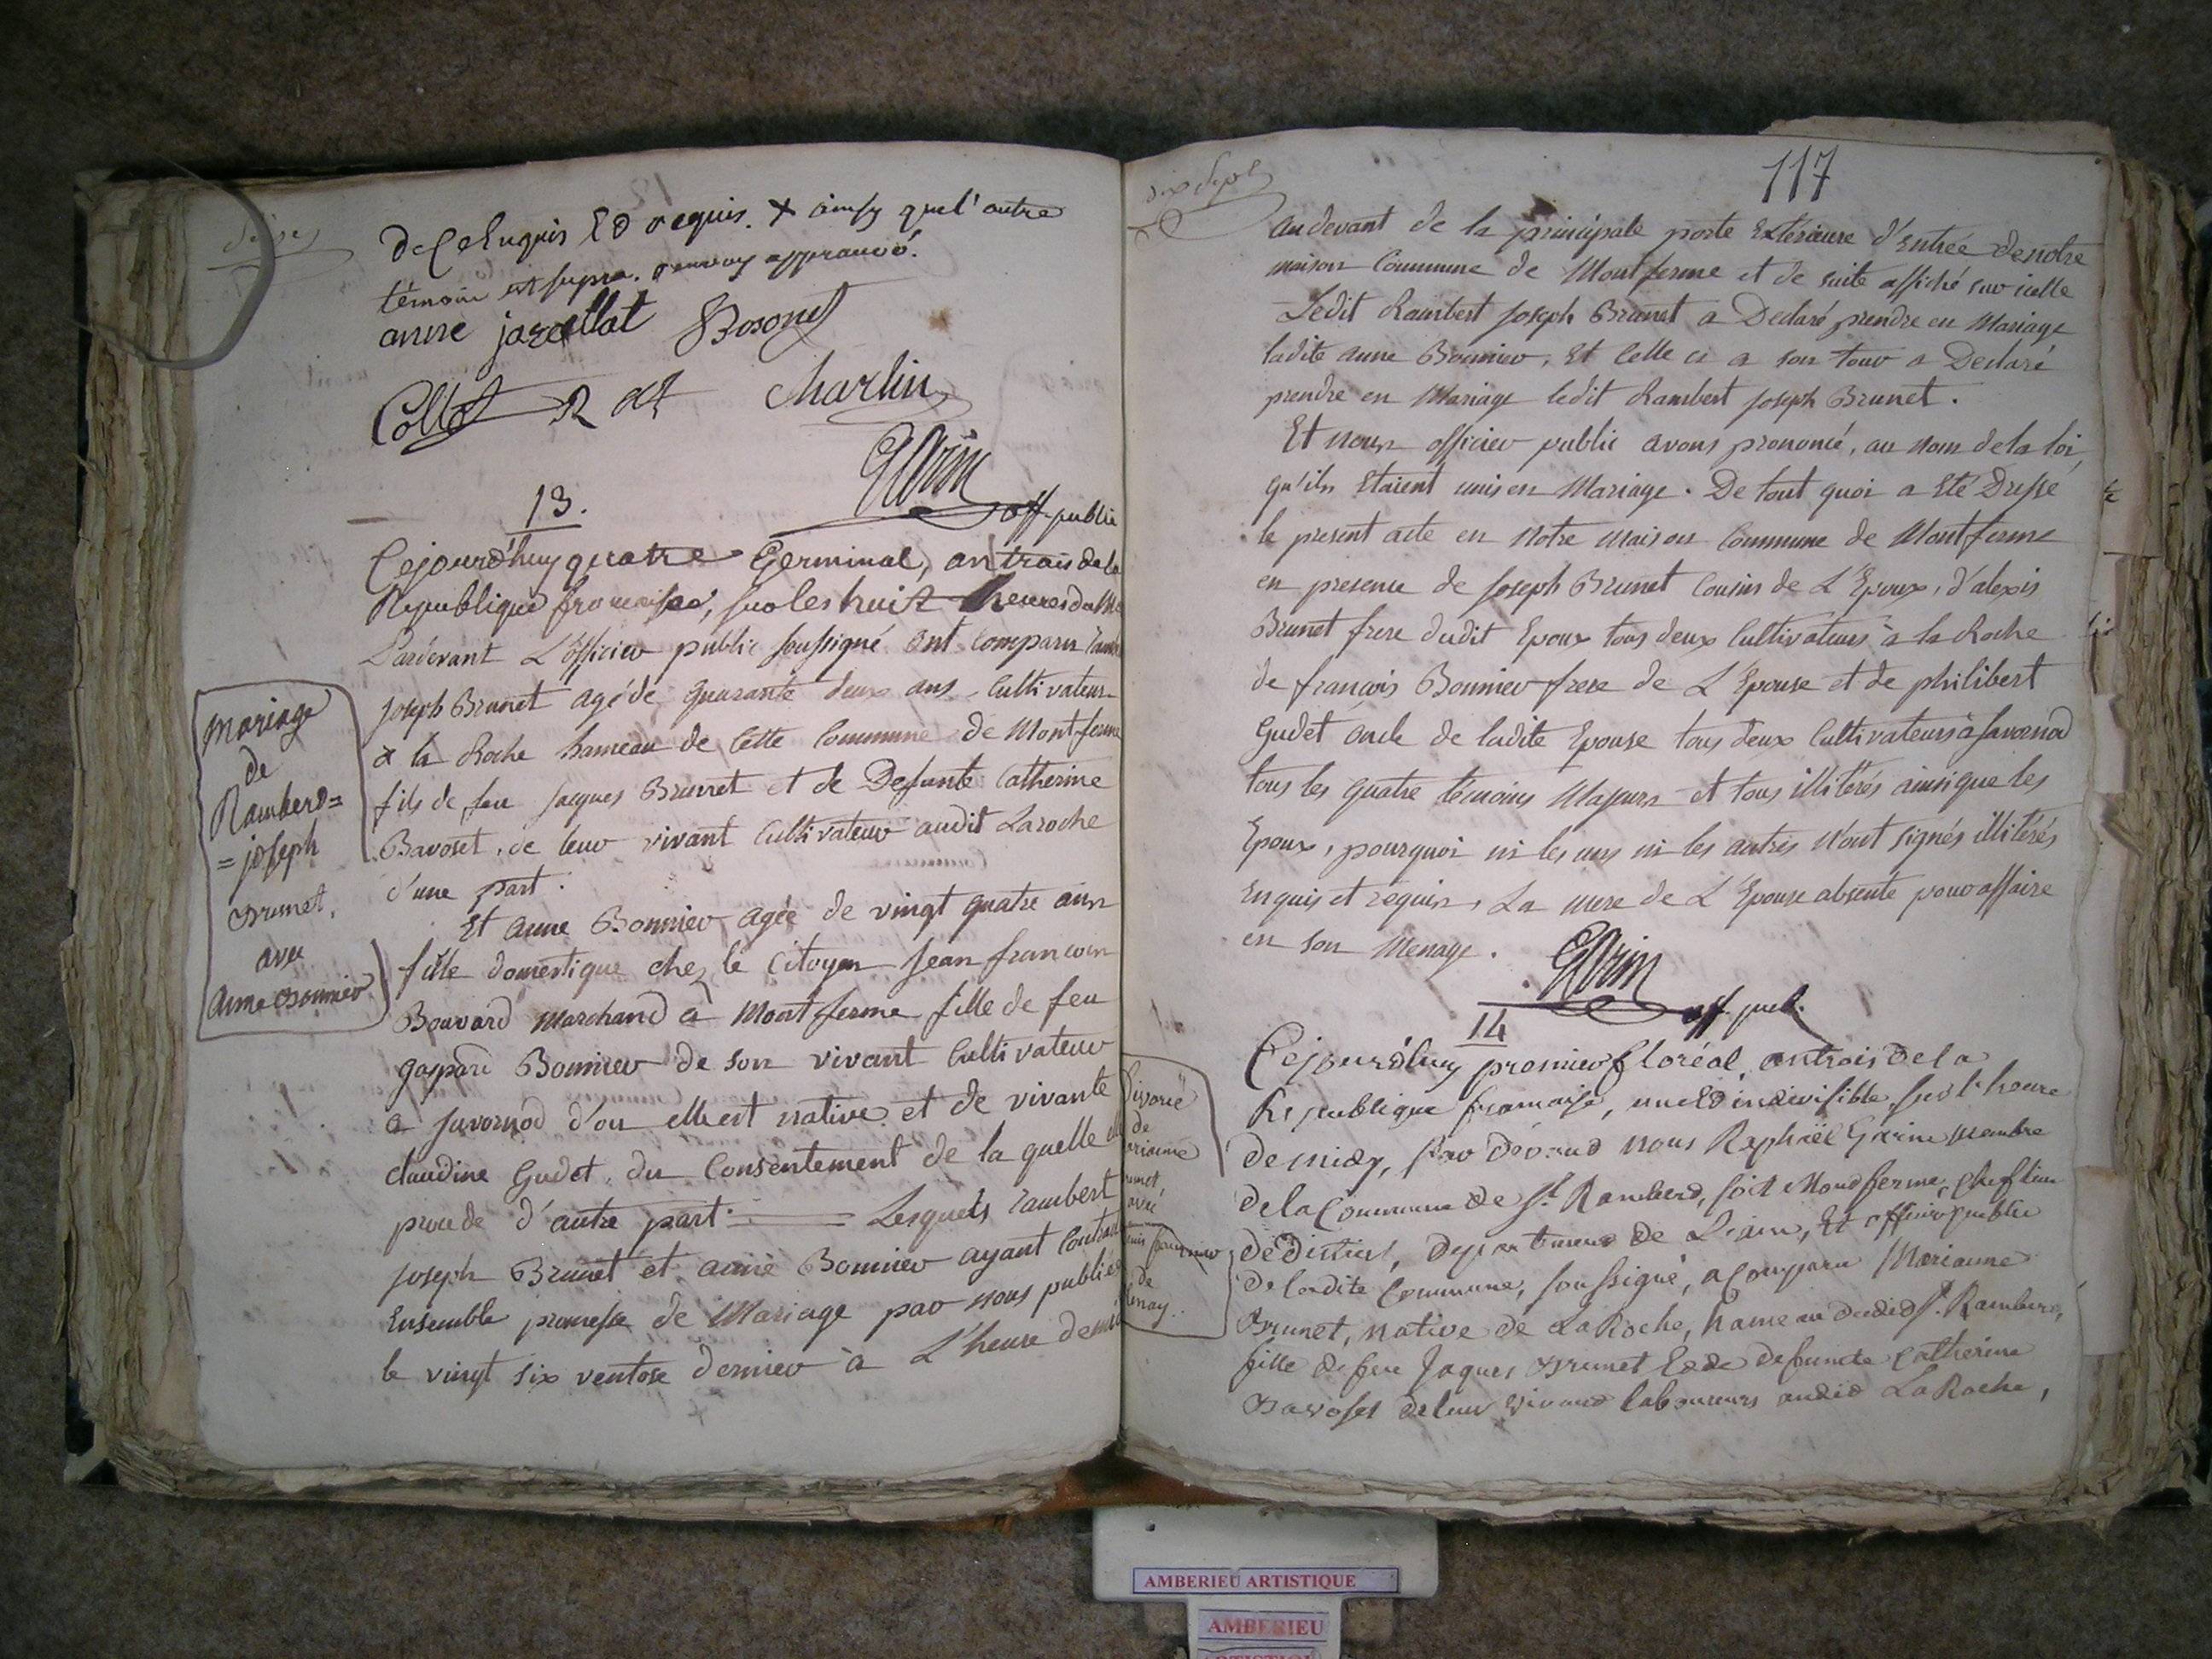 de ce Enquis Ed requis. + ainsy que l'autre
témoin ut supra. renvoy approuvé.
anne jarcellat Bosonet
Collet
Charlin
Garin
off. public
13.
Cejourd'huy quatre Germinal, an trois de la
Republique francaise, sur les huit heures du
Pardevant L'officier public soussigné ont comparu
joseph Brunet agé de quarante deux ans, Cultivateur
a la Roche hameau de Cette Commune de Montferme
fils de feu Jacques Brunet et de Defunte Catherine
Bavoset, de leur vivant Cultivateur audit Laroche
d'une part.
Et anne Bonnier agée de vingt quatre ans
fille domestique chez le Citoyen Jean francois
Bouvard Marchand à Montferme fille de feu
gaspard Bonnier de son vivant Cultivateur
a Javornod d'ou elle est native et de vivante
claudine Gudet, du Consentement de la quelle
procede d'autre part. Lesquels rambert
joseph Brunet et anne Bonnier ayant
Ensemble promesse de Mariage par nous publiée
le vingt six ventose dernier à L'heure de
mariage
de
Ramberd=
=joseph
Brunet,
avec
Anne Bonnier
117
au devant de la principale porte Extérieure d'Entrée de notre
maison Commune de Montferme et de suite affiché sur icelle
Ledit Rambert Joseph Brunet a Declaré prendre en Mariage
ladite anne Bonnier, Et Celle ci a son tour a Declaré
prendre en Mariage ledit Rambert Joseph Brunet.
Et nous officier public avons prononcé, au nom de la loi,
qu'ils Etaient unis en Mariage. De tout quoi a Eté Dressé
le present acte en Notre Maison Commune de Montferme
en presence de Joseph Brunet Cousin de L'Epoux, d'alexis
Brunet frere dudit Epoux tous deux Cultivateurs à la Roche
de françois Bonnier frere de L'Epouse et de philibert
Gudet oncle de ladite Epouse tous deux Cultivateurs à Javornod
tous les quatre témoins Majeurs et tous illiterés ainsi que les
Epoux, pourquoi ni les uns ni les autres N'ont signés illitérés
Enquis et requis, La mere de L'Epouse absente pour affaire
en son Menage.
Garin
off. pub.
14
Cejourd'huy premier floréal, an trois de la
Republique francaise, une Ed indivisible, sur l'heure
de midy, Par devand nous Raphaël Garin membre
de la Commune de St. Ramberd, soit Mondferme, chef lieu
de District, departement de L'ain, Et officier public
de ladite Commune, soussigné, a Comparu Marianne
Brunet, native de La Roche, hameau dudid St. Ramberd,
fille de feu Jaques Brunet Ed de defuncte Catherine
Bavoset de leur vivand laboureurs audid La Roche,
Divorce
de
avec
de
AMBERIEU ARTISTIQUE
AMBERIEU
ARTISTIQUE